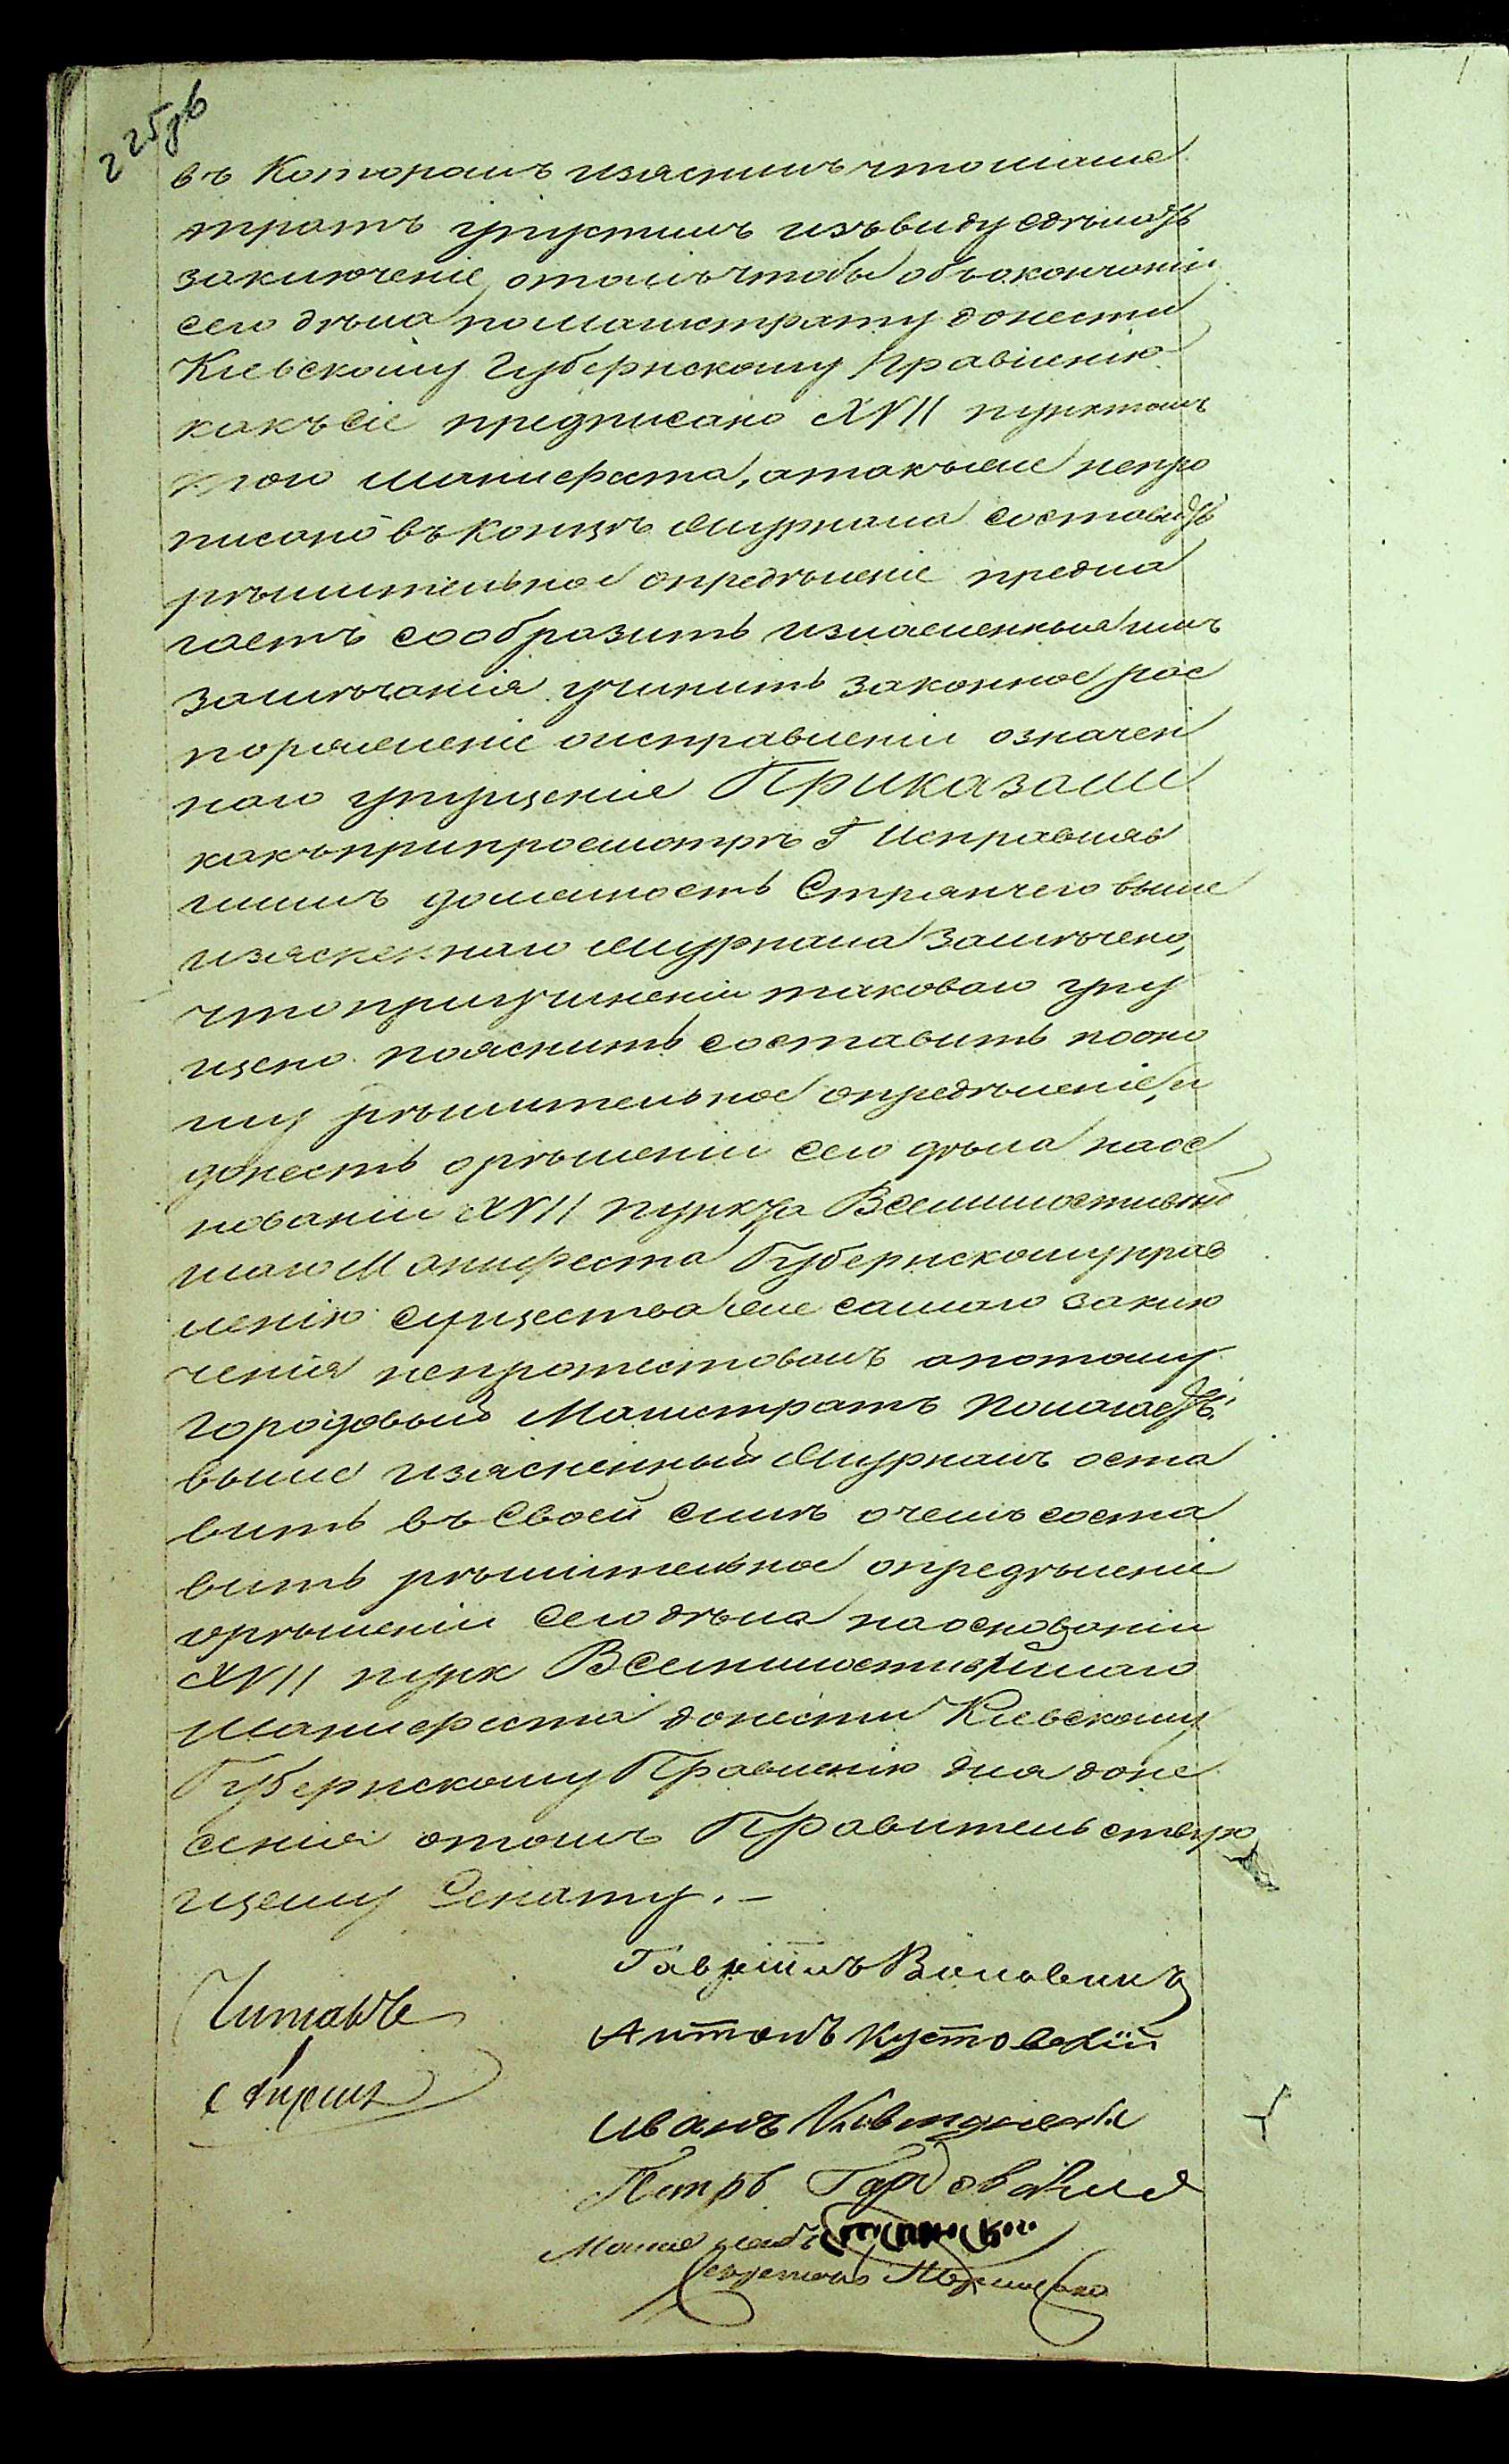 225 об
въ Которомъ изяснилъ что маги
стратъ упустилъ изъ виду сделать
заключеніе, отомъ чтобы объ окончаніи
сего дѣла по магистрату донести
Кіевскому Губернскому Правленію
какъ сіе предписано XVII пунктомъ
того манифеста, а такъ же непро
писано въ концѣ журнала составить
рѣшительное опредѣленіе предла
гаетъ сообразить изложенные имъ
замѣчанія учинить законное рас
поряженіе о исправленіи означен
наго упущенія Приказали
какъ при просмотрѣ Г Исправляв
шимъ должность Стряпчего выше
изясненнаго журнала замѣчено,
что при учиненіи таковаго упу
щено пояснить составить по оно
му рѣшительное опредѣленіе, и
донесть о рѣшеніи сего дѣла на ос
нованіи XVII пункта Всемилостивей
шаго Манифеста Губернскому прав
ленію существа же самаго заклю
ченія непротестовалъ а потому
городовый Магистратъ Полагаетъ:
выше изясненный журналъ оста
вить въ своей силѣ о чемъ соста
вить рѣшительное опредѣленіе
о рѣшеніи сего дѣла на основаніи
XVII пунк Всемилостивѣйшаго
Манифеста донести Кіевскому
Губернскому Правленію для доне
сенія отомъ Правительствую
щему Сенату. —
Гавріилъ Воловикъ
Читалъ
Антонъ Кустовскій
Иванъ
Петръ
Секретарь